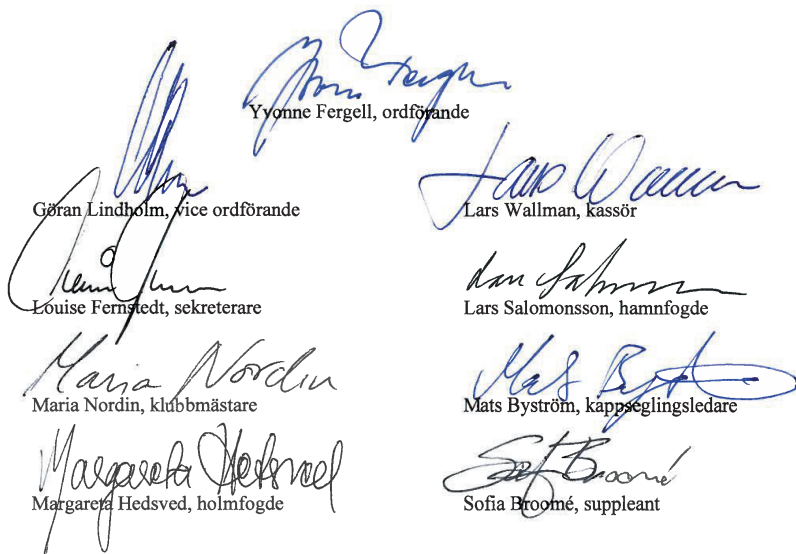 Yvonne Fergell
Yvonne Fergell, ordförande
Göran Lindholm, vice ordförande
Lars Wallman
Lars Wallman, kassör
Louise Fernstedt, sekreterare
Lars Salomonsson, hamnfogde
Maria Nordin
Maria Nordin, klubbmästare
Mats Byström, kappseglingsledare
Margareta Hedsved
Margareta Hedsved, holmfogde
Sofia Broomé, suppleant